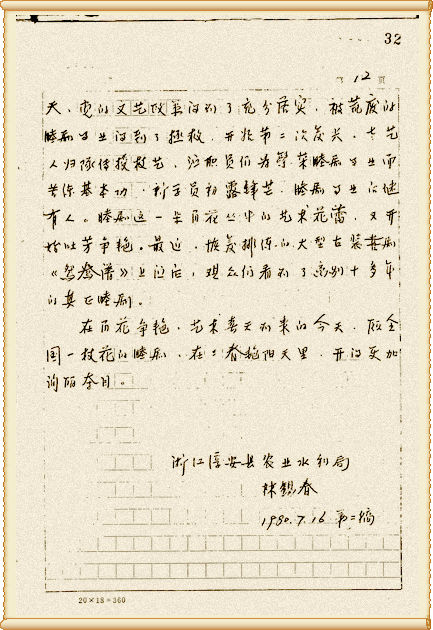 32
第 12 页
天,党的文艺政策得到了充分落实,被荒废的
睦剧事业得到了拯救,开始第二次复兴,老艺
人归队传授技艺,演职员们为繁荣睦剧事业而
苦练基本功,新学员初露锋芒,睦剧事业后继
有人。睦剧这一朵百花丛中的艺术花蕾,又开
始吐芳争艳。最近,恢复排练的大型古装喜剧
《鸳鸯谱》上演后,观众们看到了离别十多年
的真正睦剧。
在百花争艳,艺术春天到来的今天,取全
国一枝花的睦剧,在 春艳阳天里,开得更加
绚丽夺目。
浙江淳安县农业水利局
林锡春
1980.7.16 第二稿
20×18=360